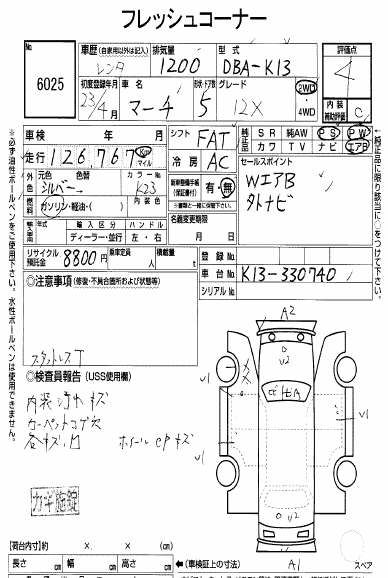 フレッシュコーナー
No.
6025
車歴 (自家用以外は記入) 排気量 型式
レンタ 1200 DBA-K13
初度登録年月 車名 ボディ・ドア数 グレード
23/4月 マーチ 5 12X
2WD
4WD
評価点
4
内装
補助評価 C
車検 年 月
走行 126,767 Km マイル
シフト FAT
冷房 AC
外色 元色 色替 カラーNo.
シルバー K23
燃料 ガソリン・軽油・( ) 内装色
新車整備手帳 (保証書付) 有・無
※書類と一緒に保管下さい。
名義変更期限
月 日
輸入車 年式 輸入区分 ハンドル
ディーラー・並行 左・右
リサイクル預託金 8800円
乗車定員 人
積載量 t
純正品 SR 純AW PS PW
カワ TV ナビ エアB
セールスポイント
WエアB
外ナビ
登録No.
車台No. K13-330740
シリアルNo.
※必ず油性ボールペンをご使用下さい。水性ボールペンは使用できません。
↑純正品に限り該当に○をつけて下さい。
◎注意事項 (修復・不具合箇所および状態等)
スタットレスT
◎検査員報告 (USS使用欄)
内装汚れキズ
カーペットコゲ穴
各キズ凹 ホイールcPキズ
カギ施錠
A2
U2
U1
U1
U1
U2
A1
スペア
【荷台内寸】 × × (cm)
長さ cm 幅 cm 高さ cm
←(車検証上の寸法)